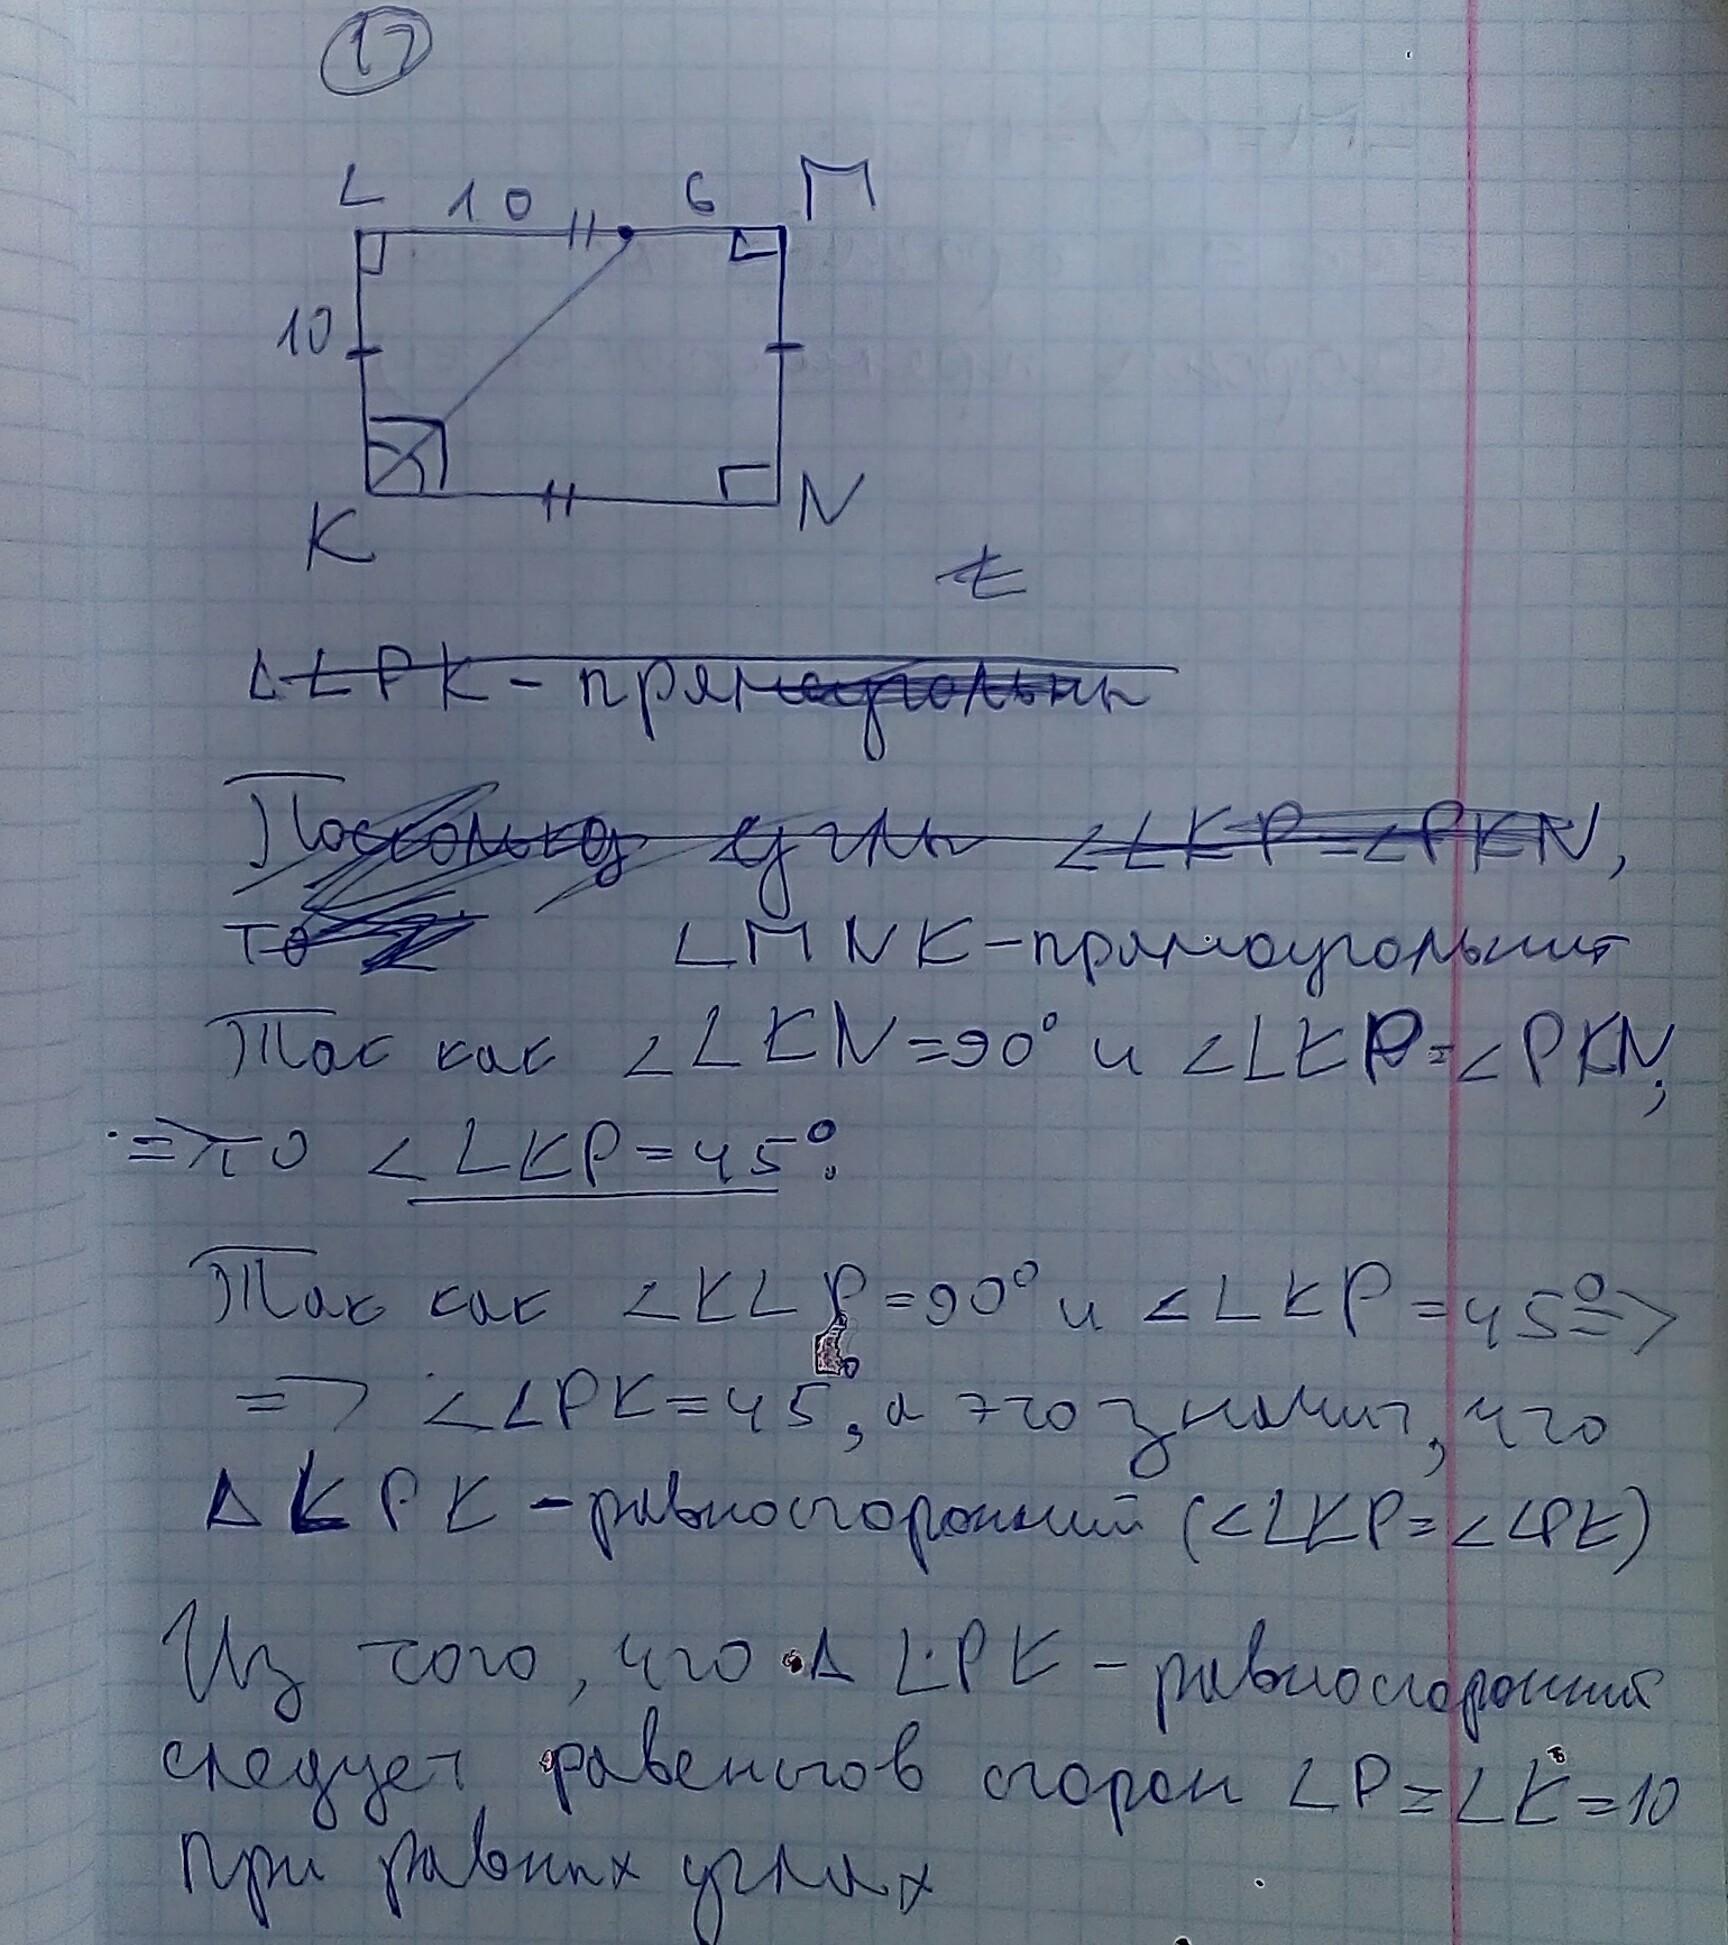 17
L 10 6 М
10
К N
t
Δ LPK - прямоугольн
Поскольку углы ∠LKP=∠PKN,
то LMNK-прямоугольник
Так как ∠LKN=90° и ∠LKP=∠PKN,
=>то ∠LKP=45°.
Так как ∠KLP=90° и ∠LKP=45°=>
=> ∠LPK=45°, а это значит, что
Δ LPK - равносторонний (∠LKP=∠LPK)
Из того, что Δ LPK - равносторонний
следует равенство сторон LP=LK=10
при равных углах